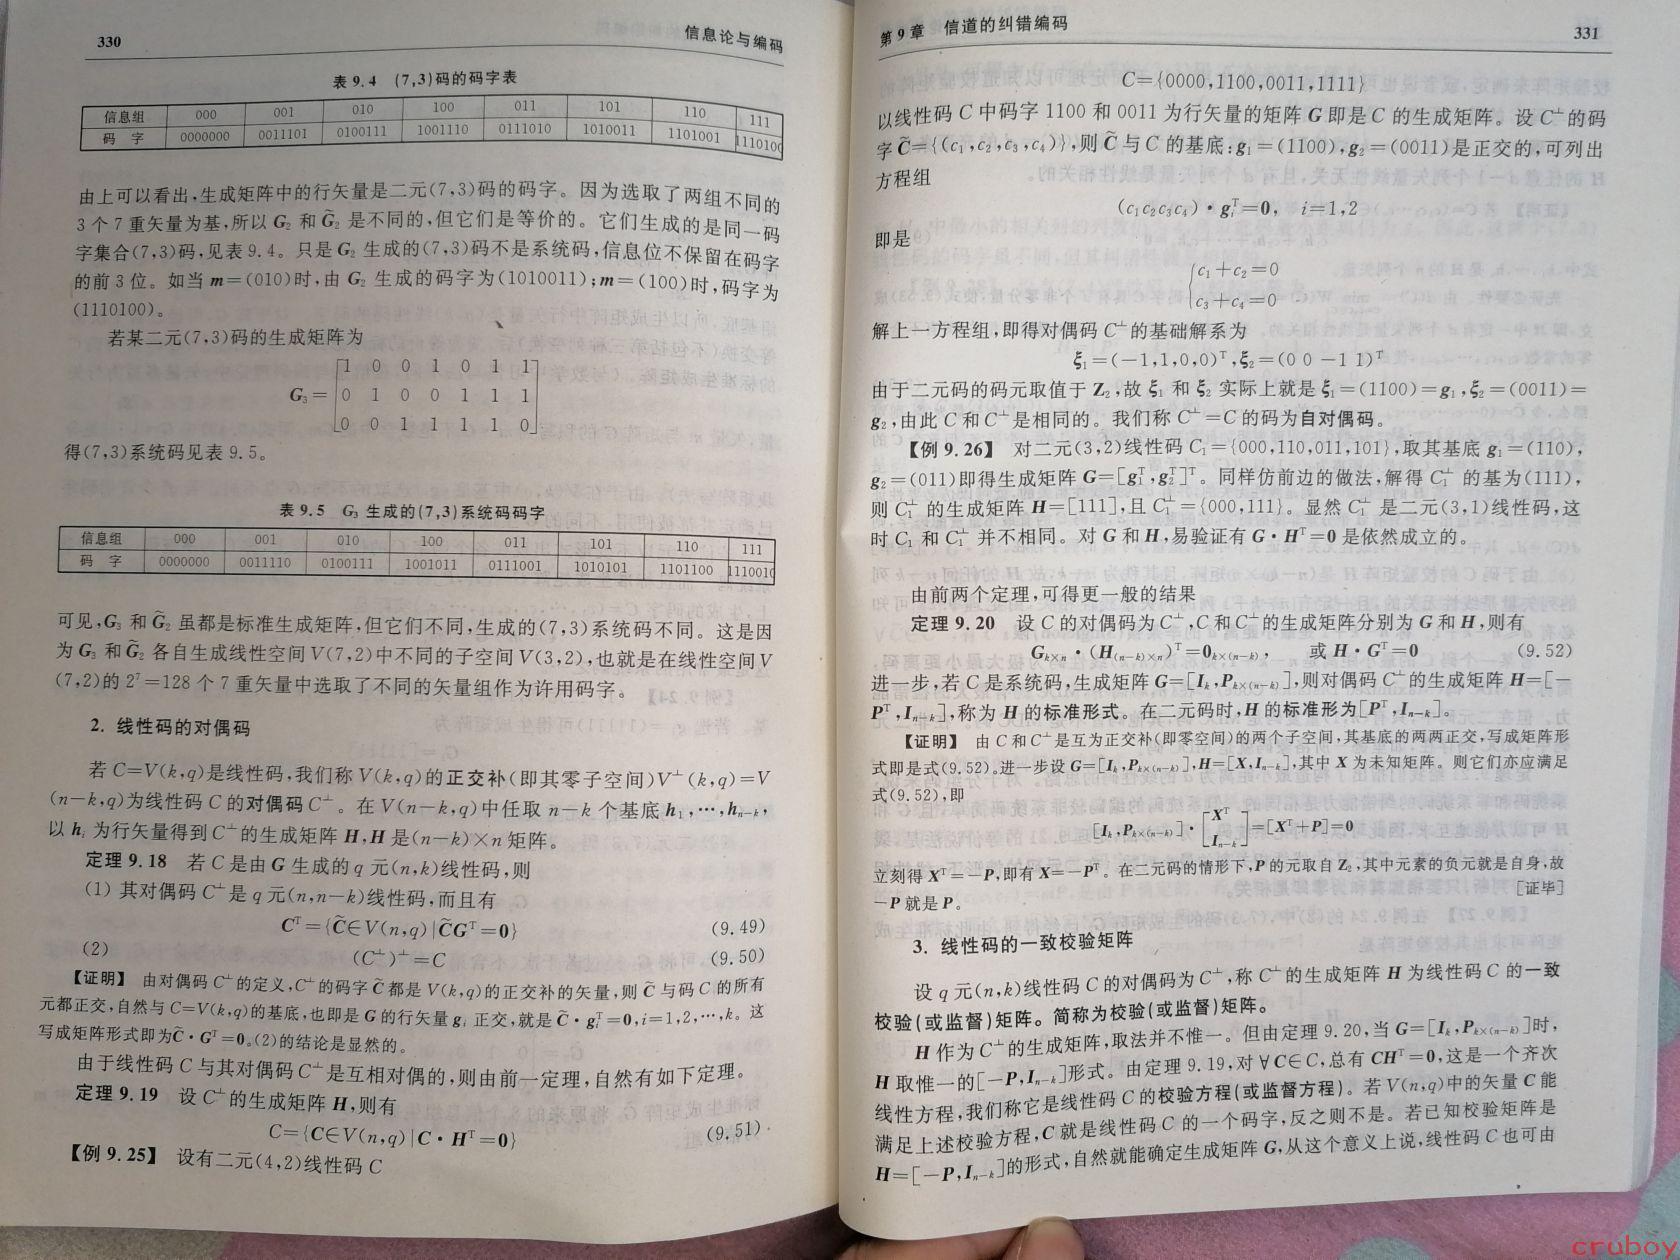 330
信息论与编码
表 9.4 (7,3)码的码字表
信息组 000 001 010 100 011 101 110 111
码 字 0000000 0011101 0100111 1001110 0111010 1010011 1101001 1110100
由上可以看出,生成矩阵中的行矢量是二元(7,3)码的码字。因为选取了两组不同的
3 个 7 重矢量为基,所以 G₂ 和 G̃₂ 是不同的,但它们是等价的。它们生成的是同一码
字集合(7,3)码,见表 9.4。只是 G₂ 生成的(7,3)码不是系统码,信息位不保留在码字
的前 3 位。如当 m=(010)时,由 G₂ 生成的码字为(1010011);m=(100)时,码字为
(1110100)。
若某二元(7,3)码的生成矩阵为
G₃= [1 0 0 1 0 1 1
0 1 0 0 1 1 1
0 0 1 1 1 1 0]
得(7,3)系统码见表 9.5。
表 9.5 G₃ 生成的(7,3)系统码码字
信息组 000 001 010 100 011 101 110 111
码 字 0000000 0011110 0100111 1001011 0111001 1010101 1101100 1110010
可见,G₃ 和 G̃₂ 虽都是标准生成矩阵,但它们不同,生成的(7,3)系统码不同。这是因
为 G₃ 和 G̃₂ 各自生成线性空间 V(7,2)中不同的子空间 V(3,2),也就是在线性空间 V
(7,2)的 2⁷=128 个 7 重矢量中选取了不同的矢量组作为许用码字。
2. 线性码的对偶码
若 C=V(k,q)是线性码,我们称 V(k,q)的正交补(即其零子空间)V⊥(k,q)=V
(n−k,q)为线性码 C 的对偶码 C⊥。在 V(n−k,q)中任取 n−k 个基底 h₁,⋯,hₙ₋ₖ,
以 hᵢ 为行矢量得到 C⊥的生成矩阵 H,H 是(n−k)×n 矩阵。
定理 9.18 若 C 是由 G 生成的 q 元(n,k)线性码,则
(1) 其对偶码 C⊥是 q 元(n,n−k)线性码,而且有
Cᵀ={C̃∈V(n,q)|C̃Gᵀ=0} (9.49)
(2) (C⊥)⊥=C (9.50)
【证明】 由对偶码 C⊥的定义,C⊥的码字 C̃ 都是 V(k,q)的正交补的矢量,则 C̃ 与码 C 的所有
元都正交,自然与 C=V(k,q)的基底,也即是 G 的行矢量 gᵢ 正交,就是 C̃・gᵢᵀ=0,i=1,2,⋯,k。这
写成矩阵形式即为C̃・Gᵀ=0。(2)的结论是显然的。
由于线性码 C 与其对偶码 C⊥是互相对偶的,则由前一定理,自然有如下定理。
定理 9.19 设 C⊥的生成矩阵 H,则有
C={C∈V(n,q)|C・Hᵀ=0} (9.51)
【例 9.25】 设有二元(4,2)线性码 C
第 9 章 信道的纠错编码
331
C={0000,1100,0011,1111}
以线性码 C 中码字 1100 和 0011 为行矢量的矩阵 G 即是 C 的生成矩阵。设 C⊥的码
字 C̃={(c₁,c₂,c₃,c₄)},则 C̃ 与 C 的基底:g₁=(1100),g₂=(0011)是正交的,可列出
方程组
(c₁c₂c₃c₄)・gᵢᵀ=0, i=1,2
即是
{c₁+c₂=0
c₃+c₄=0
解上一方程组,即得对偶码 C⊥的基础解系为
ξ₁=(−1,1,0,0)ᵀ,ξ₂=(0 0 −1 1)ᵀ
由于二元码的码元取值于 Z₂,故 ξ₁ 和 ξ₂ 实际上就是 ξ₁=(1100)=g₁,ξ₂=(0011)=
g₂,由此 C 和 C⊥是相同的。我们称 C⊥=C 的码为自对偶码。
【例 9.26】 对二元(3,2)线性码 C₁={000,110,011,101},取其基底 g₁=(110),
g₂=(011)即得生成矩阵 G=[g₁ᵀ,g₂ᵀ]ᵀ。同样仿前边的做法,解得 C₁⊥ 的基为(111),
则 C₁⊥ 的生成矩阵 H=[111],且 C₁⊥={000,111}。显然 C₁⊥ 是二元(3,1)线性码,这
时 C₁ 和 C₁⊥ 并不相同。对 G 和 H,易验证有 G・Hᵀ=0 是依然成立的。
由前两个定理,可得更一般的结果
定理 9.20 设 C 的对偶码为 C⊥,C 和 C⊥的生成矩阵分别为 G 和 H,则有
Gₖ×ₙ・(H₍ₙ₋ₖ₎×ₙ)ᵀ=0ₖ×₍ₙ₋ₖ₎, 或 H・Gᵀ=0 (9.52)
进一步,若 C 是系统码,生成矩阵 G=[Iₖ,Pₖ×₍ₙ₋ₖ₎],则对偶码 C⊥的生成矩阵 H=[−
Pᵀ,Iₙ₋ₖ],称为 H 的标准形式。在二元码时,H 的标准形为[Pᵀ,Iₙ₋ₖ]。
【证明】 由 C 和 C⊥是互为正交补(即零空间)的两个子空间,其基底的两两正交,写成矩阵形
式即是式(9.52)。进一步设 G=[Iₖ,Pₖ×₍ₙ₋ₖ₎],H=[X,Iₙ₋ₖ],其中 X 为未知矩阵。则它们亦应满足
式(9.52),即
[Iₖ,Pₖ×₍ₙ₋ₖ₎]・[Xᵀ
Iₙ₋ₖ]=[Xᵀ+P]=0
立刻得 Xᵀ=−P,即有 X=−Pᵀ。在二元码的情形下,P 的元取自 Z₂,其中元素的负元就是自身,故
−P 就是 P。 [证毕]
3. 线性码的一致校验矩阵
设 q 元(n,k)线性码 C 的对偶码为 C⊥,称 C⊥的生成矩阵 H 为线性码 C 的一致
校验(或监督)矩阵。简称为校验(或监督)矩阵。
H 作为 C⊥的生成矩阵,取法并不惟一。但由定理 9.20,当 G=[Iₖ,Pₖ×₍ₙ₋ₖ₎]时,
H 取惟一的[−P,Iₙ₋ₖ]形式。由定理 9.19,对∀C∈C,总有 CHᵀ=0,这是一个齐次
线性方程,我们称它是线性码 C 的校验方程(或监督方程)。若 V(n,q)中的矢量 C 能
满足上述校验方程,C 就是线性码 C 的一个码字,反之则不是。若已知校验矩阵是
H=[−P,Iₙ₋ₖ]的形式,自然就能确定生成矩阵 G,从这个意义上说,线性码 C 也可由
cruboy